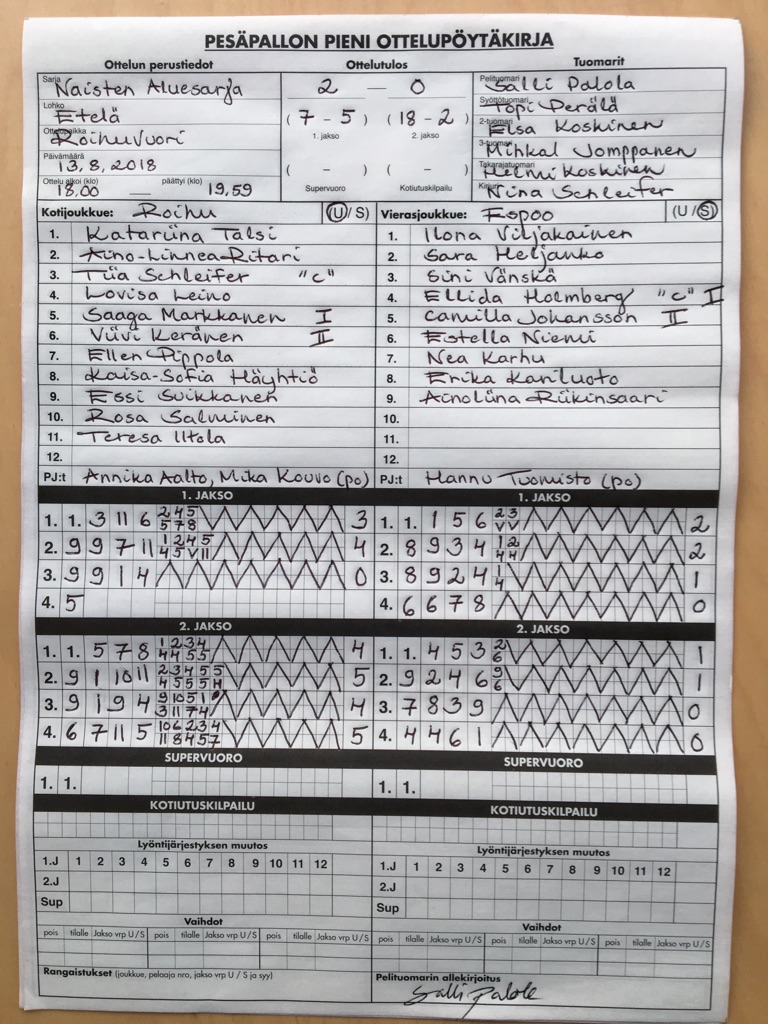 PESÄPALLON PIENI OTTELUPÖYTÄKIRJA
Ottelun perustiedot Ottelutulos Tuomarit
Sarja Naisten Aluesarja 2 — 0 Pelituomari Salli Palola
Lohko Etelä (7 - 5) (18 - 2) Syöttötuomari Topi Perälä
Ottelupaikka Roihuvuori 1. jakso 2. jakso 2-tuomari Elsa Koskinen
Päivämäärä 13.8.2018 ( - ) ( - ) 3-tuomari Mihkal Jomppanen
Ottelu alkoi (klo) 18.00 — päättyi (klo) 19.59 Supervuoro Kotiutuskilpailu Takarajatuomari Helmi Koskinen
Kirjuri Nina Schleifer
Kotijoukkue: Roihu (U / S) Vierasjoukkue: Espoo (U / S)
1. Katariina Talsi 1. Ilona Viljakainen
2. Aino-Linnea Ritari 2. Sara Heljanko
3. Tiia Schleifer "C" 3. Sini Vänskä
4. Lovisa Leino 4. Ellida Holmberg "C" I
5. Saaga Markkanen I 5. Camilla Johansson II
6. Viivi Keränen II 6. Estella Niemi
7. Ellen Pippola 7. Nea Karhu
8. Kaisa-Sofia Häyhtiö 8. Erika Kariluoto
9. Essi Suikkanen 9. Ainoliina Riikinsaari
10. Rosa Salminen 10.
11. Teresa Iltola 11.
12. 12.
PJ:t Annika Aalto, Mika Kouvo (po) PJ:t Hannu Tuomisto (po)
1. JAKSO 1. JAKSO
1. 1. 3 11 6 2 4 5 5 7 8 3 1. 1. 1 5 6 2 3 V V 2
2. 9 9 7 11 1 2 4 5 4 5 V 11 4 2. 8 9 3 4 1 2 4 4 2
3. 9 9 1 4 0 3. 8 9 2 4 1 4 1
4. 5 4. 6 6 7 8 0
2. JAKSO 2. JAKSO
1. 1. 5 7 8 1 2 3 4 4 4 5 5 4 1. 1. 4 5 3 2 6 1
2. 9 1 10 11 2 3 4 5 5 4 5 5 5 11 5 2. 9 2 4 6 9 6 1
3. 9 1 9 4 9 10 5 1 3 11 7 4 4 3. 7 8 3 9 0
4. 6 7 11 5 10 6 2 3 4 11 8 4 5 7 5 4. 4 4 6 1 0
SUPERVUORO SUPERVUORO
1. 1. 1. 1.
KOTIUTUSKILPAILU KOTIUTUSKILPAILU
Lyöntijärjestyksen muutos Lyöntijärjestyksen muutos
1.J 1 2 3 4 5 6 7 8 9 10 11 12 1.J 1 2 3 4 5 6 7 8 9 10 11 12
2.J 2.J
Sup Sup
Vaihdot Vaihdot
pois tilalle Jakso vrp U / S pois tilalle Jakso vrp U / S pois tilalle Jakso vrp U / S pois tilalle Jakso vrp U / S pois tilalle Jakso vrp U / S pois tilalle Jakso vrp U / S
Rangaistukset (joukkue, pelaaja nro, jakso vrp U / S ja syy) Pelituomarin allekirjoitus
Salli Palola